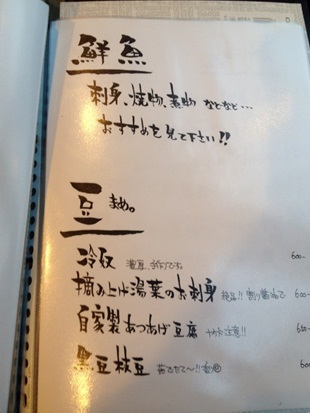 鮮魚
刺身、焼物、煮物 などなど…
おすすめを見て下さい!!
豆 まめ。
冷奴 600-
摘み上げ湯葉のお刺身 絶品!! 割り醤油で 600
自家製あつあげ豆腐 注意!!
黒豆枝豆 茹でたて〜!!